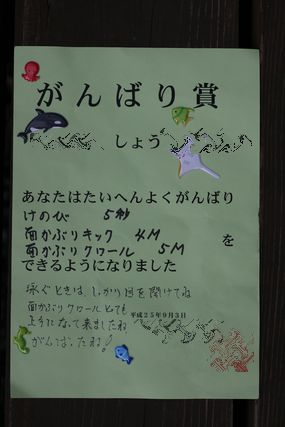 がんばり賞
しょう
あなたはたいへんよくがんばり
けのび 5秒
面かぶりキック 4M
面かぶりクロール 5M を
できるようになりました
泳ぐときは、しっかり目を開けてね
面かぶりクロールとても
ようになって来ましたね
がんばったね!
平成25年9月3日